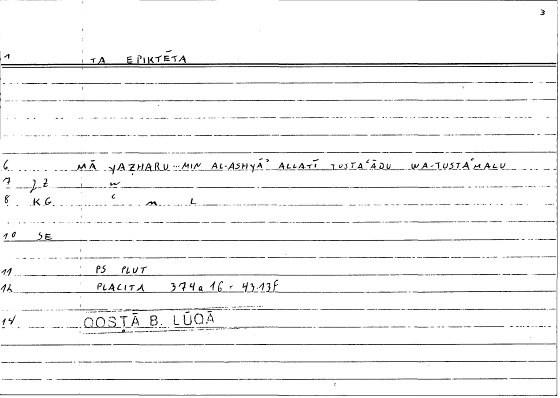 3
1 TA EPIKTĒTA
6 MĀ YAZHARU...MIN AL-ASHYĀʾ ALLATĪ TUSTAʿĀDU WA-TUSTAʿMALU
7 ZZ w
8 KG ʿ m L
10 SE
11 PS PLUT
12 PLACITA 374a16 - 43.13f
14 QOSṬĀ B. LŪQĀ